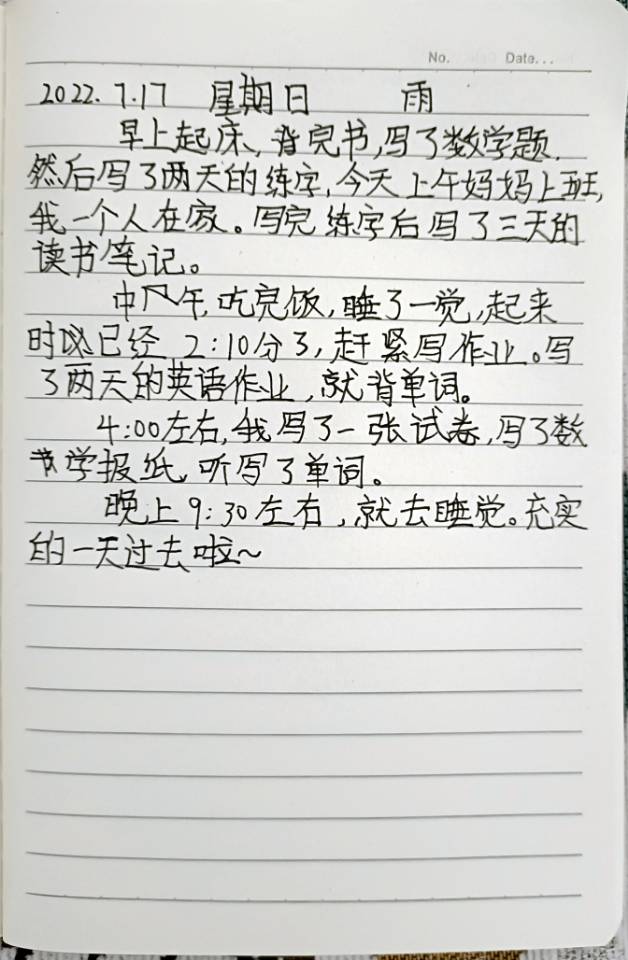 No. Date...
2022.7.17 星期日 雨
早上起床,背完书,写了数学题.
然后写了两天的练字,今天上午妈妈上班,
我一个人在家。写完练字后写了三天的
读书笔记。
中午,吃完饭,睡了一觉,起来
时已经2:10分了,赶紧写作业。写
了两天的英语作业,就背单词。
4:00左右,我写了一张试卷,写了数
学报纸,听写了单词。
晚上9:30左右,就去睡觉。充实
的一天过去啦~